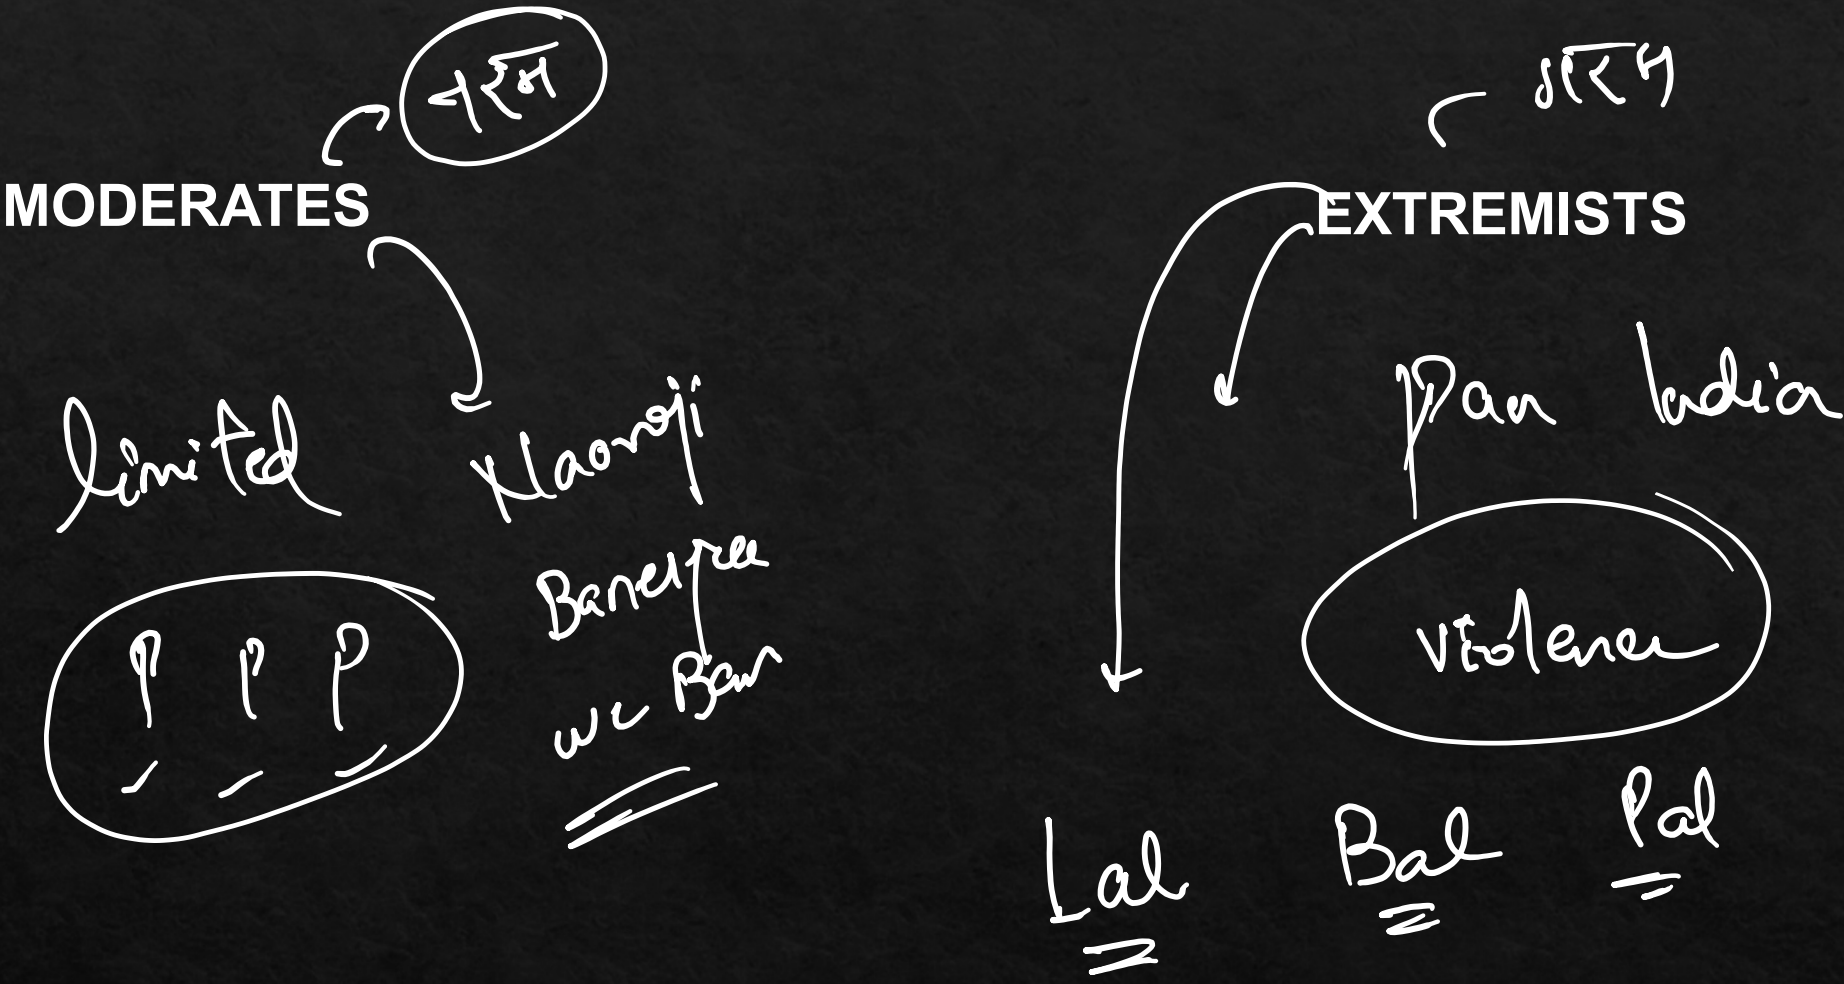 नरम
MODERATES
limited
Naoroji
Banerjee
WC Ban
P P P
गरम
EXTREMISTS
Pan India
Violence
Lal Bal Pal